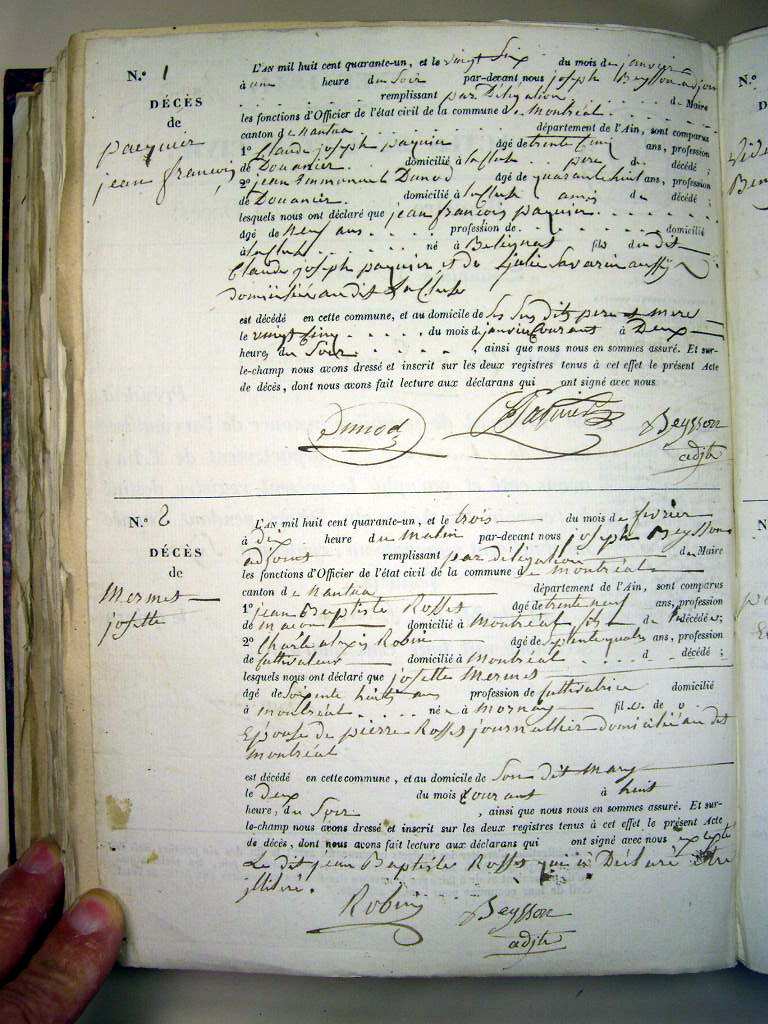 N.º 1
DÉCÈS
de
pacquier
jean françois
L'AN mil huit cent quarante-un, et le vingt Six du mois de janvier
à une heure du Soir par-devant nous joseph Beysson adjoint
remplissant par Délégation de Maire
les fonctions d'Officier de l'état civil de la commune de Montréal
canton de Nantua département de l'Ain, sont comparus
1º Claude joseph paquier agé de trente Cinq ans, profession
de Douanier domicilié à la Cluse père du décédé ;
2º jean Emmanuel Dunod agé de quarante huit ans, profession
de Douanier domicilié à la Cluse amis du décédé ;
lesquels nous ont déclaré que jean françois paquier
agé de Neuf ans profession de domicilié
à la Cluse né à Belignat fils du dit
Claude joseph paquier et de julie Savarin aussy
domiciliée au dit La Cluse
est décédé en cette commune, et au domicile de Ses Sus dit père et mere
le vingt Cinq du mois de janvier Courant à Deux
heure, du Soir , ainsi que nous nous en sommes assuré. Et sur-
le-champ nous avons dressé et inscrit sur les deux registres tenus à cet effet le présent Acte
de décès, dont nous avons fait lecture aux déclarans qui ont signé avec nous.
Dunod Paquier Beysson
adjt
N.º 2
DÉCÈS
de
Mermet
josette
L'AN mil huit cent quarante-un, et le trois du mois de fevrier
à Dix heure du Matin par-devant nous joseph Beysson
adjoint remplissant par délégation de Maire
les fonctions d'Officier de l'état civil de la commune de Montréal
canton de Nantua département de l'Ain, sont comparus
1º jean Baptiste Rosset agé de trente neuf ans, profession
de maçon domicilié à Montréal fils de la décédée ;
2º Charle alexis Robin agé de Septente quatre ans, profession
de Cultivateur domicilié à Montréal d décédé ;
lesquels nous ont déclaré que josette Mermet
agé de Soixente huit ans profession de Cultivatrice domicilié
à Montréal née à Mornay fille de
Epouse de pierre Rosset journalier domicilié au dit
Montréal
est décédé en cette commune, et au domicile de Son dit Mary
le Deux du mois Courant à huit
heure, du Soir , ainsi que nous nous en sommes assuré. Et sur-
le-champ nous avons dressé et inscrit sur les deux registres tenus à cet effet le présent Acte
de décès, dont nous avons fait lecture aux déclarans qui ont signé avec nous excepté
Le dit jean Baptiste Rosset qui a Déclaré être
jlliteré.
Robin Beysson
adjt